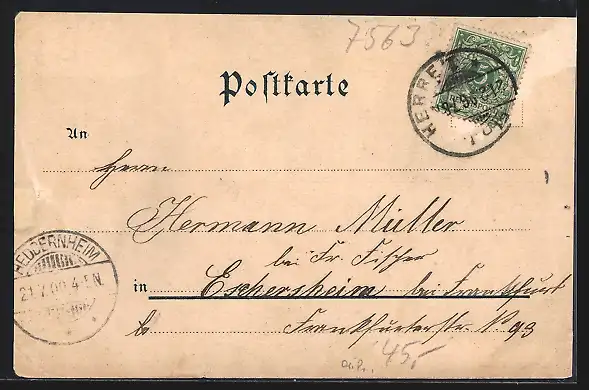 7563
Postkarte
An
Herrn
Hermann Müller
bei Fr. Fischer
in Eschersheim bei Frankfurt
Frankfurterstr. No 93
HEDDERNHEIM
21.7.00.4-5N.
45,-